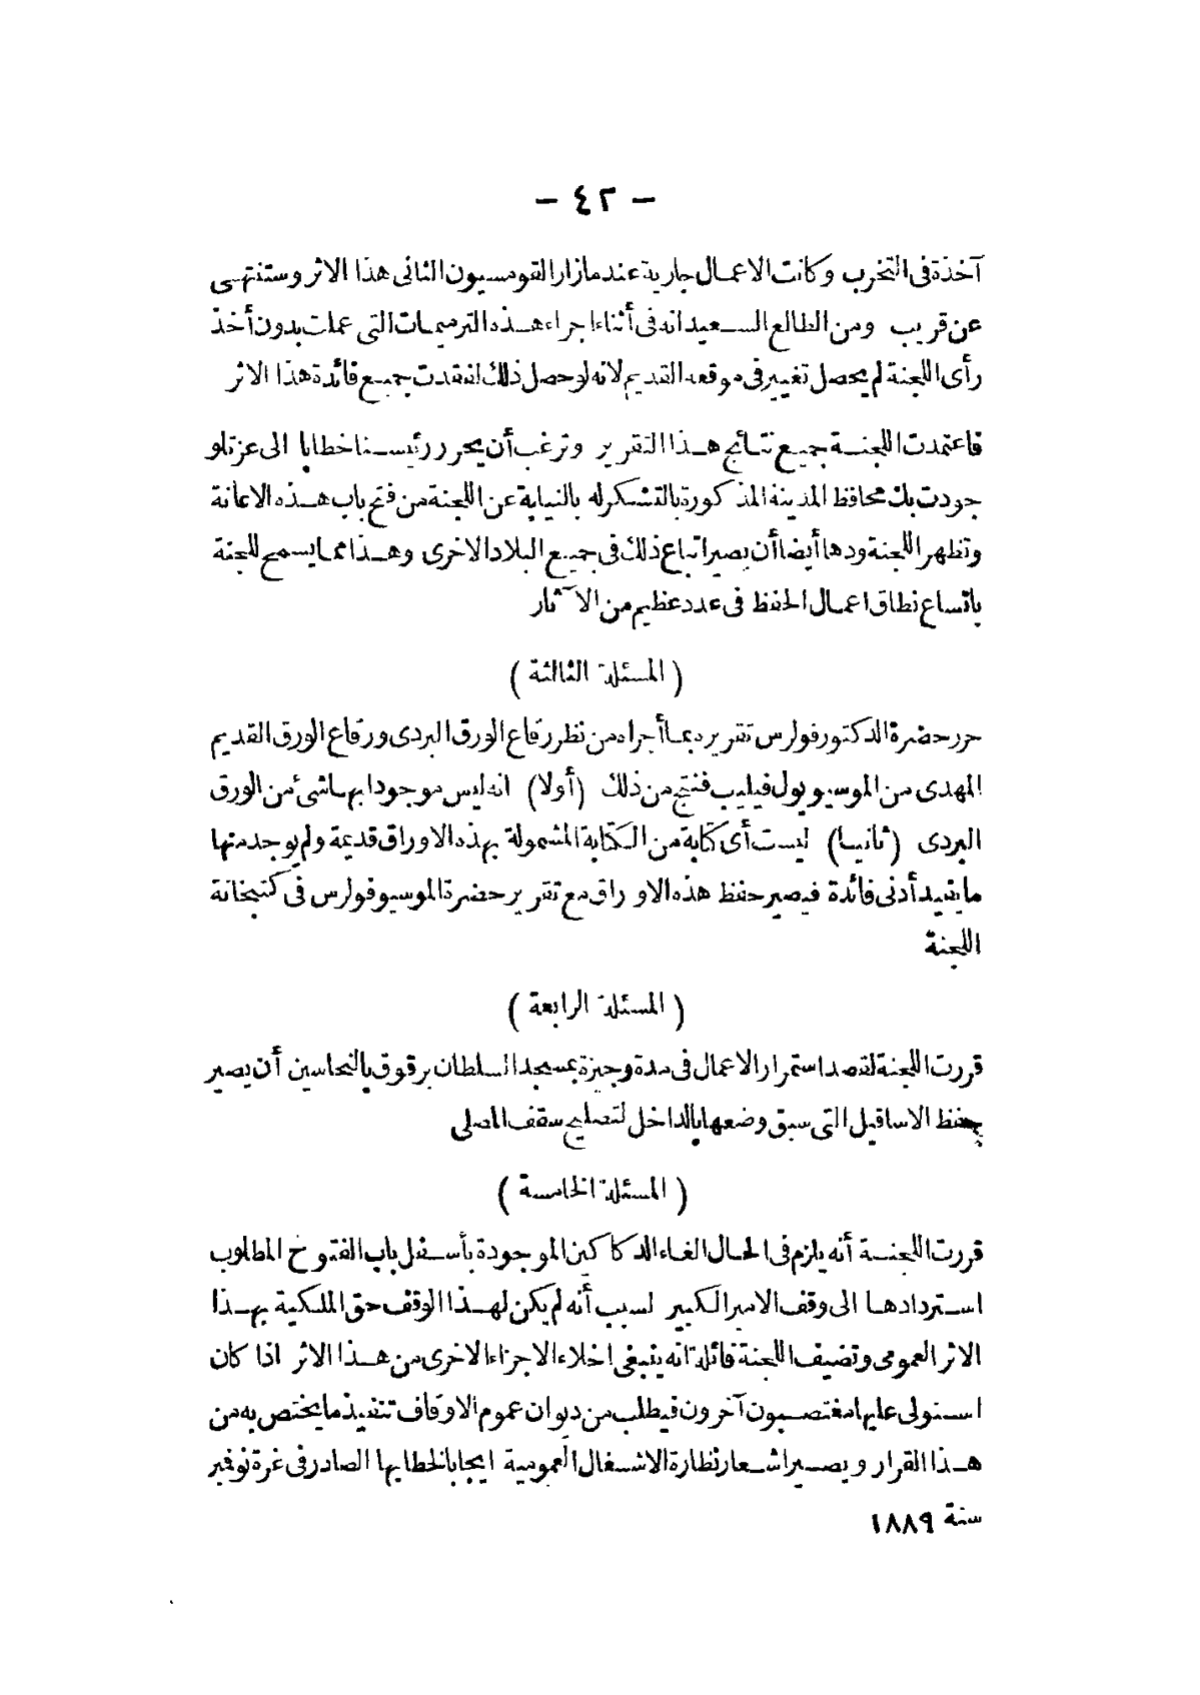 - ٤٢ -
آخذة فى التخرب وكانت الاعمال جارية عندما زار القومسيون الثانى هذا الاثر وستنتهى
عن قريب ومن الطالع السعيد انه فى أثناء اجراء هذه الترميمات التى عملت بدون أخذ
رأى اللجنة لم يحصل تغيير فى موقعه القديم لانه لو حصل ذلك لفقدت جميع فائدة هذا الاثر
فاعتمدت اللجنة جميع نتائج هذا التقرير وترغب أن يحرر رئيسنا خطابا الى عزتلو
جودت بك محافظ المدينة المذكورة بالتشكر له بالنيابة عن اللجنة من فتح باب هذه الاعانة
وتظهر اللجنة ودها أيضا أن يصير اتباع ذلك فى جميع البلاد الاخرى وهذا مما يسمح للجنة
باتساع نطاق اعمال الحفظ فى عدد عظيم من الآثار
( المسئلة الثالثة )
حرر حضرة الدكتور فولرس تقريره بما أجراه من نظر رقاع الورق البردى ورقاع الورق القديم
المهدى من الموسيو پول فيليب فنتج من ذلك (أولا) انه ليس موجودا بها شئ من الورق
البردى (ثانيا) ليست أى كتابة من الكتابة المشمولة بهذه الاوراق قديمة ولم يوجد منها
ما يفيد أدنى فائدة فيصير حفظ هذه الاوراق مع تقرير حضرة الموسيو فولرس فى كتبخانة
اللجنة
( المسئلة الرابعة )
قررت اللجنة لقصد استمرار الاعمال فى مدة وجيزة بمسجد السلطان برقوق بالنحاسين أن يصير
حفظ الاساقيل التى سبق وضعها بالداخل لتصليح سقف المصلى
( المسئلة الخامسة )
قررت اللجنة أنه يلزم فى الحال الغاء الدكاكين الموجودة بأسفل باب الفتوح المطلوب
استردادها الى وقف الامير الكبير لسبب أنه لم يكن لهذا الوقف حق الملكية بهذا
الاثر العمومى وتضيف اللجنة قائلة انه ينبغى اخلاء الاجزاء الاخرى من هذا الاثر اذا كان
استولى عليها مغتصبون آخرون فيطلب من ديوان عموم الاوقاف تنفيذ ما يختص به من
هذا القرار ويصير اشعار نظارة الاشغال العمومية ايجابا لخطابها الصادر فى غرة نوفمبر
سنة ١٨٨٩